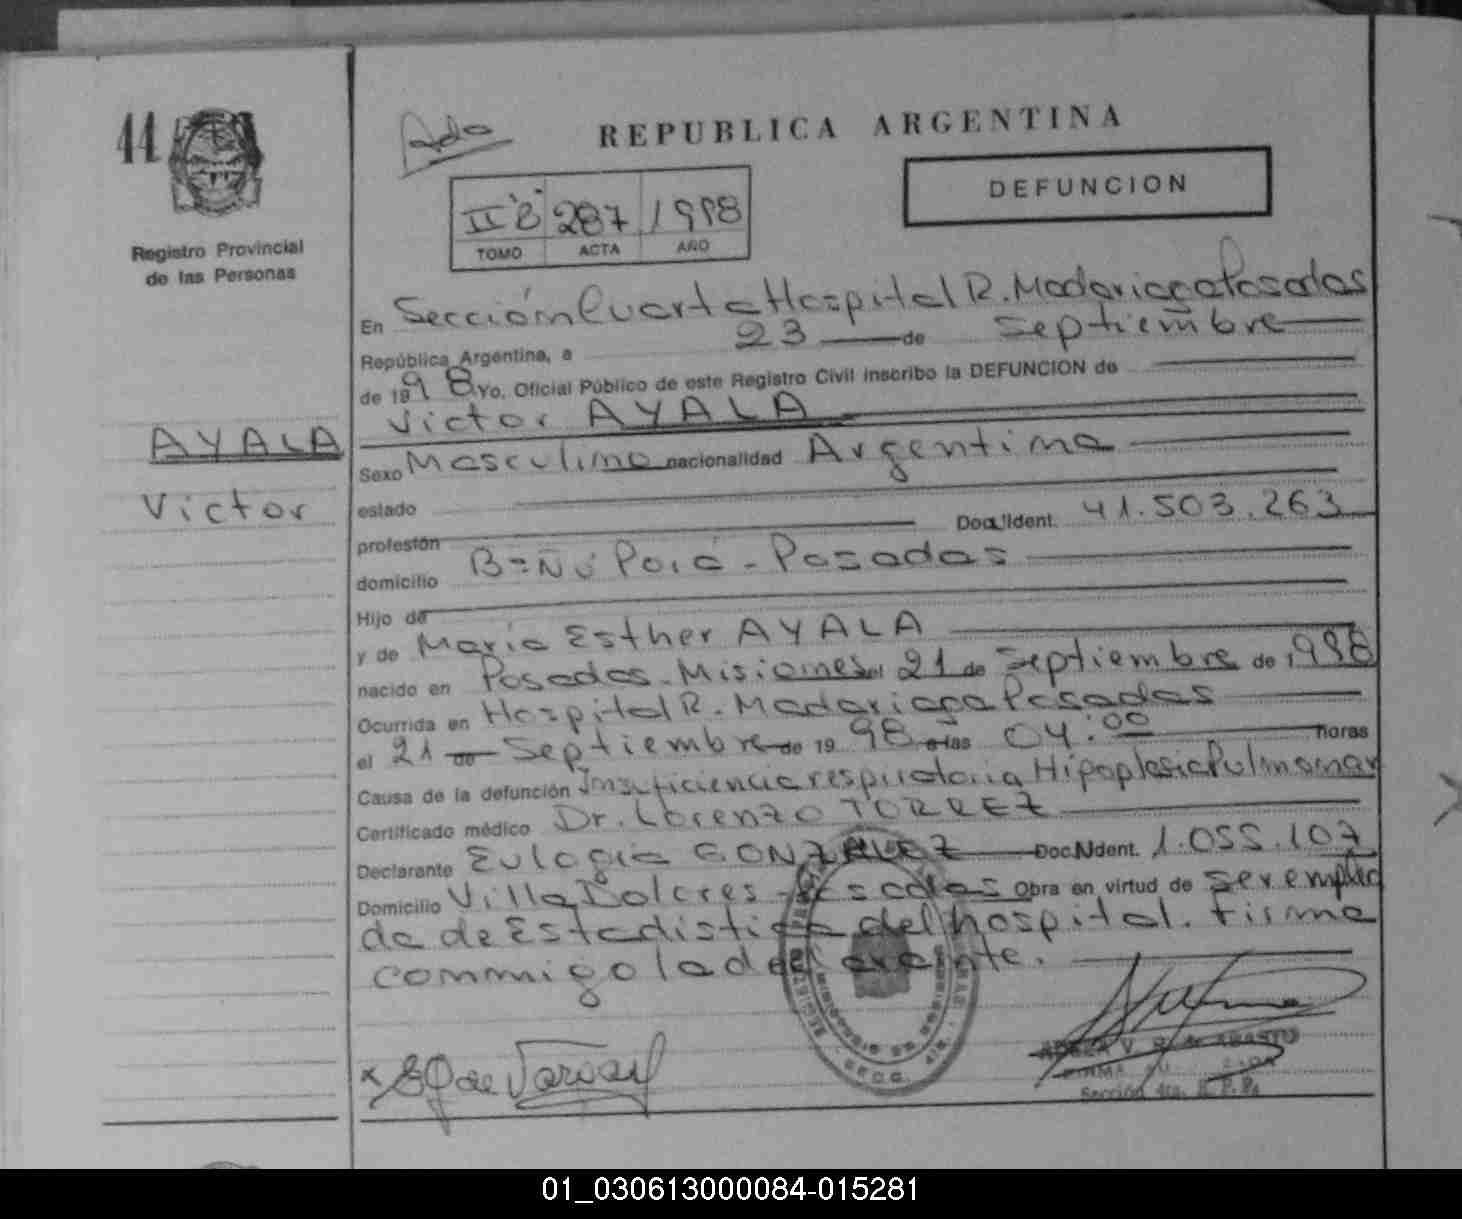 11
Registro Provincial
de las Personas
AYALA
Victor
Ado
REPUBLICA ARGENTINA
II"B" 287 1998
TOMO ACTA AÑO
DEFUNCION
En Sección Cuarta Hospital R. Madariaga Posadas
República Argentina, a 23 de Septiembre
de 1998 Yo, Oficial Público de este Registro Civil inscribo la DEFUNCION de
Victor AYALA
Sexo Masculino nacionalidad Argentina
estado
profesión Doc. Ident. 41.503.263
domicilio B=Ñú Porá - Posadas
Hijo de
y de Maria Esther AYALA
nacido en Posadas - Misiones el 21 de Septiembre de 1998
Ocurrida en Hospital R. Madariaga Posadas
el 21 de Septiembre de 1998 a las 04:00 horas
Causa de la defunción Insuficiencia respiratoria Hipoplasia Pulmonar
Certificado médico Dr. Lorenzo TORREZ
Declarante Eulogia GONZALEZ Doc. Ident. 1.055.107
Domicilio Villa Dolores - Posadas Obra en virtud de ser emplea
da de Estadistica del hospital. Firma
conmigo la declarante.
Sección 4ta. R. P. P.
01_030613000084-015281